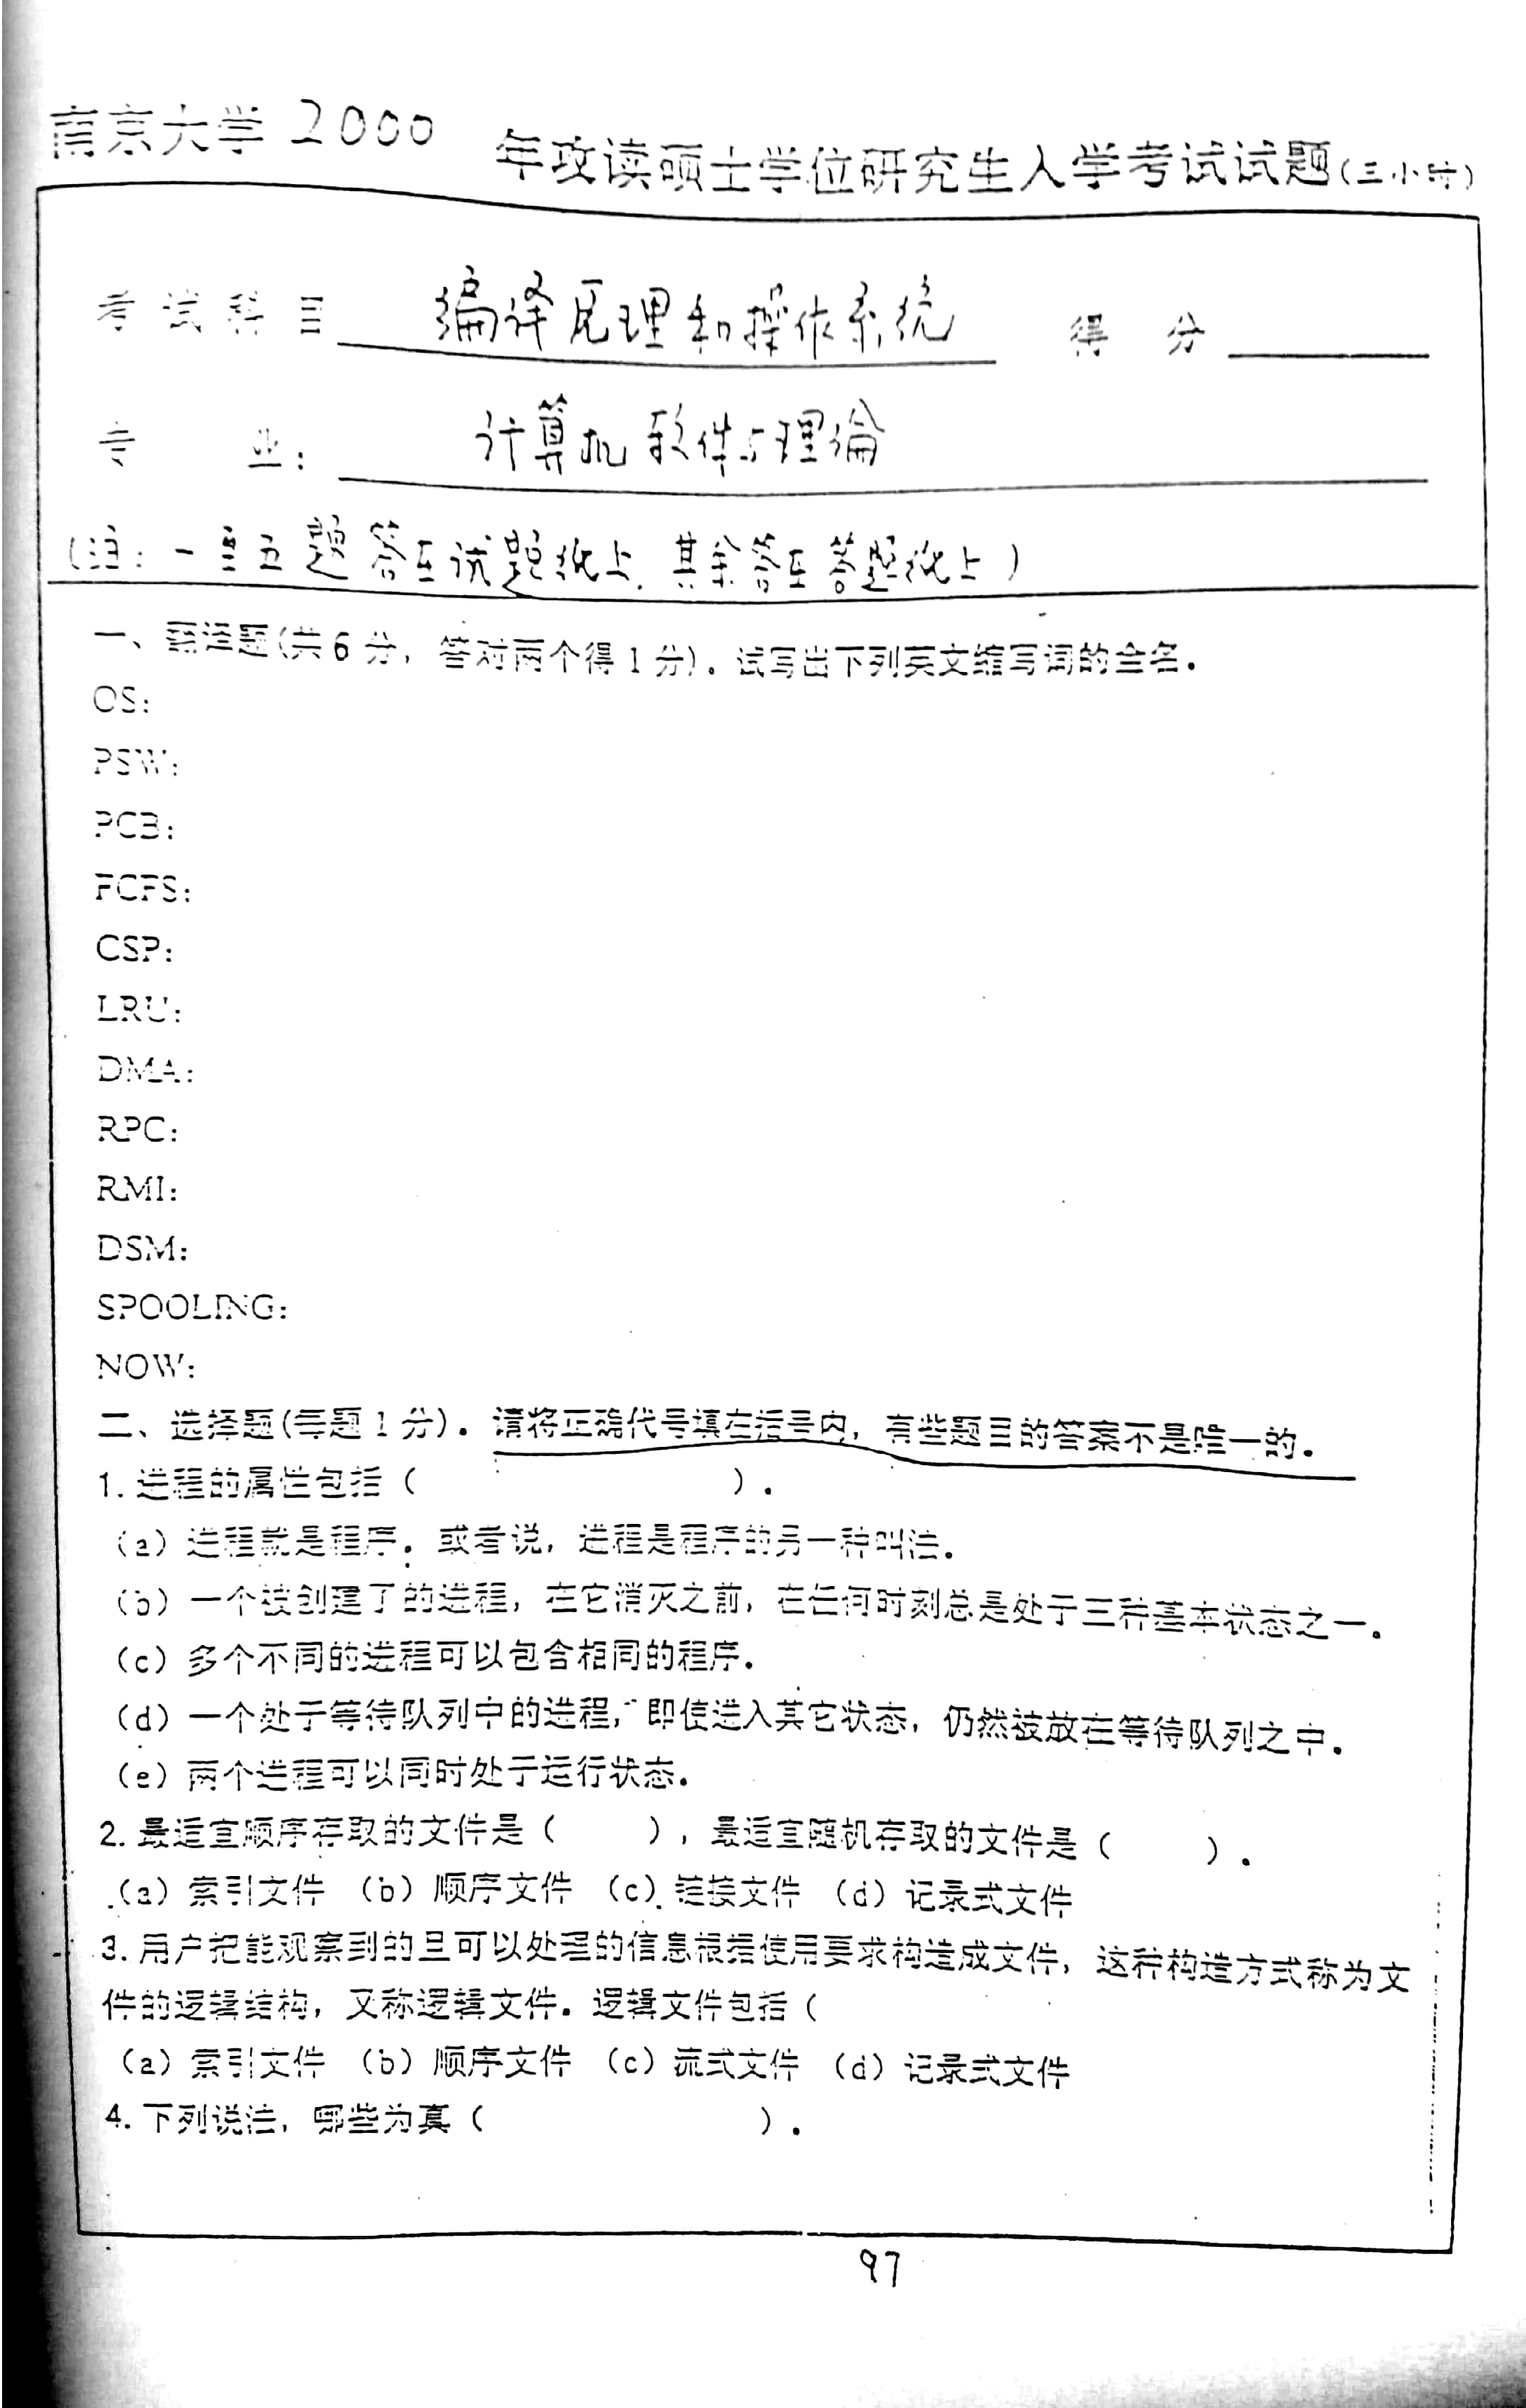 南京大学 2000 年攻读硕士学位研究生入学考试试题(三小时)
考试科目 编译原理和操作系统 得分
专业: 计算机软件与理论
(注: 一至五题答在试题纸上, 其余答在答题纸上)
一、翻译题(共6分, 答对两个得1分)。试写出下列英文缩写词的全名.
OS:
PSW:
PCB:
FCFS:
CSP:
LRU:
DMA:
RPC:
RMI:
DSM:
SPOOLING:
NOW:
二、选择题(每题1分)。请将正确代号填在括号内, 有些题目的答案不是唯一的.
1. 进程的属性包括( ).
(a) 进程就是程序. 或者说, 进程是程序的另一种叫法.
(b) 一个被创建了的进程, 在它消灭之前, 在任何时刻总是处于三种基本状态之一.
(c) 多个不同的进程可以包含相同的程序.
(d) 一个处于等待队列中的进程, 即使进入其它状态, 仍然被放在等待队列之中.
(e) 两个进程可以同时处于运行状态.
2. 最适宜顺序存取的文件是( ), 最适宜随机存取的文件是( ).
(a) 索引文件 (b) 顺序文件 (c) 链接文件 (d) 记录式文件
3. 用户把能观察到的且可以处理的信息根据使用要求构造成文件, 这种构造方式称为文
件的逻辑结构, 又称逻辑文件. 逻辑文件包括(
(a) 索引文件 (b) 顺序文件 (c) 流式文件 (d) 记录式文件
4. 下列说法, 哪些为真( ).
97